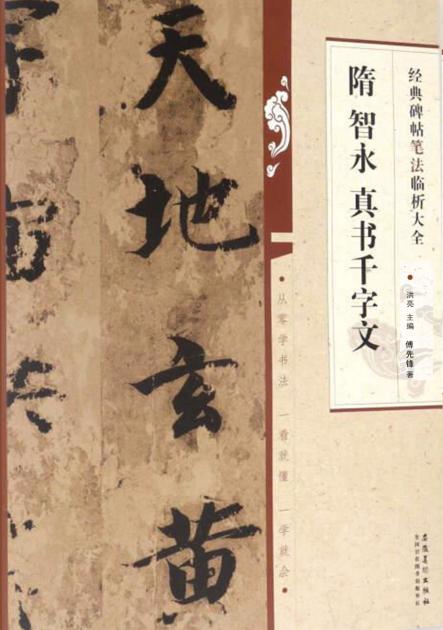 经典碑帖笔法临析大全
隋 智永 真书千字文
洪亮 主编 傅先锋 著
从零学书法 一看就懂 一学就会
天地玄黄
宇宙
安徽美术出版社
全国百佳图书出版单位